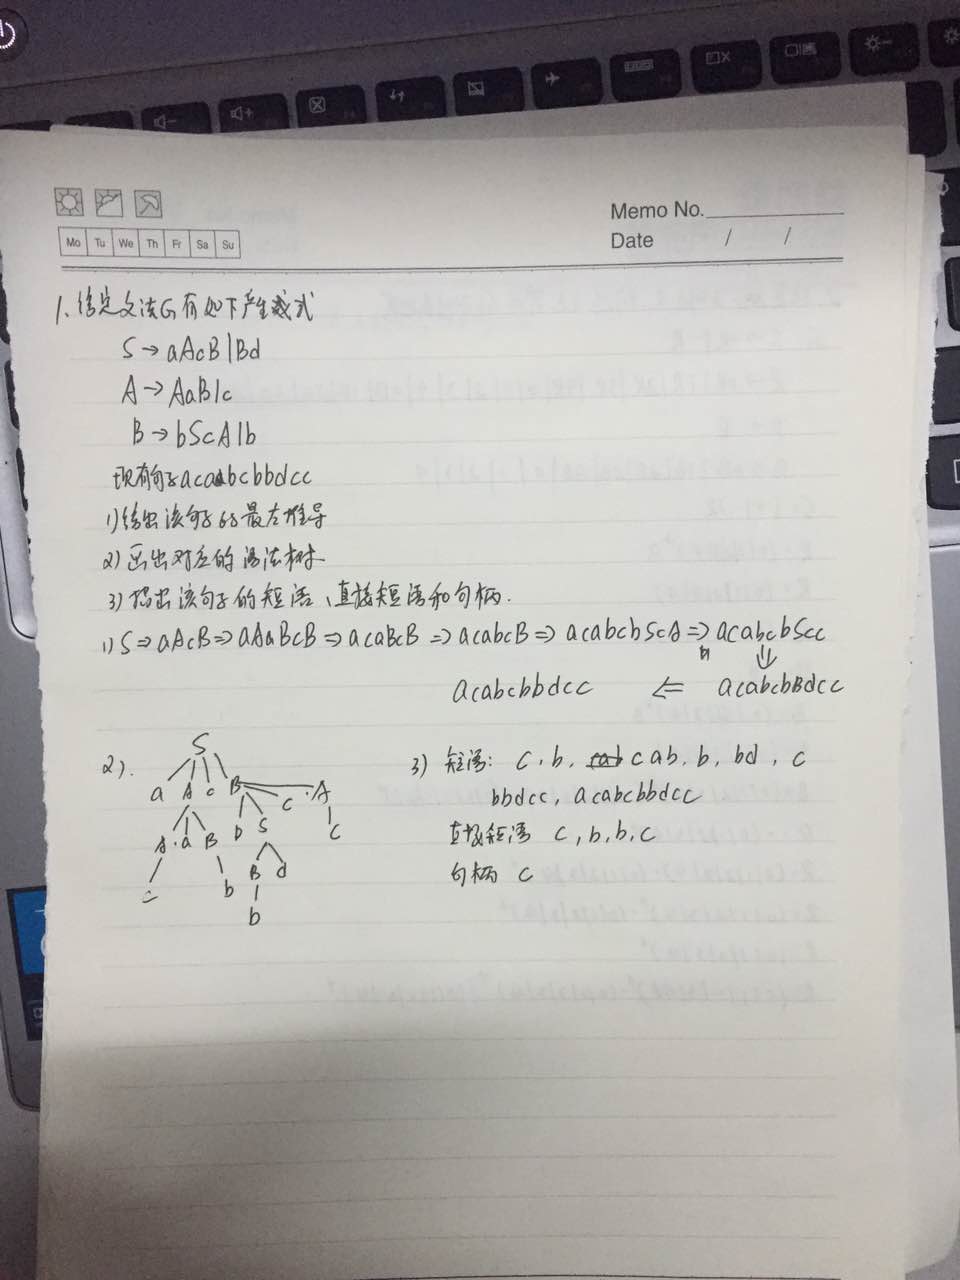 Memo No.
Date / /
Mo Tu We Th Fr Sa Su
1. 给定文法G有如下产生式
S → aAcB | Bd
A → AaB | c
B → bScA | b
现有句子acabcbbdcc
1) 给出该句子的最左推导
2) 画出对应的语法树
3) 指出该句子的短语、直接短语和句柄.
1) S ⇒ aAcB ⇒ aAaBcB ⇒ acaBcB ⇒ acabcB ⇒ acabcbScA ⇒ acabcbScc
⇓
acabcbbdcc ⇐ acabcbBdcc
2).
S
a A c B
A a B b S c A
c b B d c
b
3) 短语: c, b, cab, b, bd, c
bbdcc, acabcbbdcc
直接短语 c, b, b, c
句柄 c